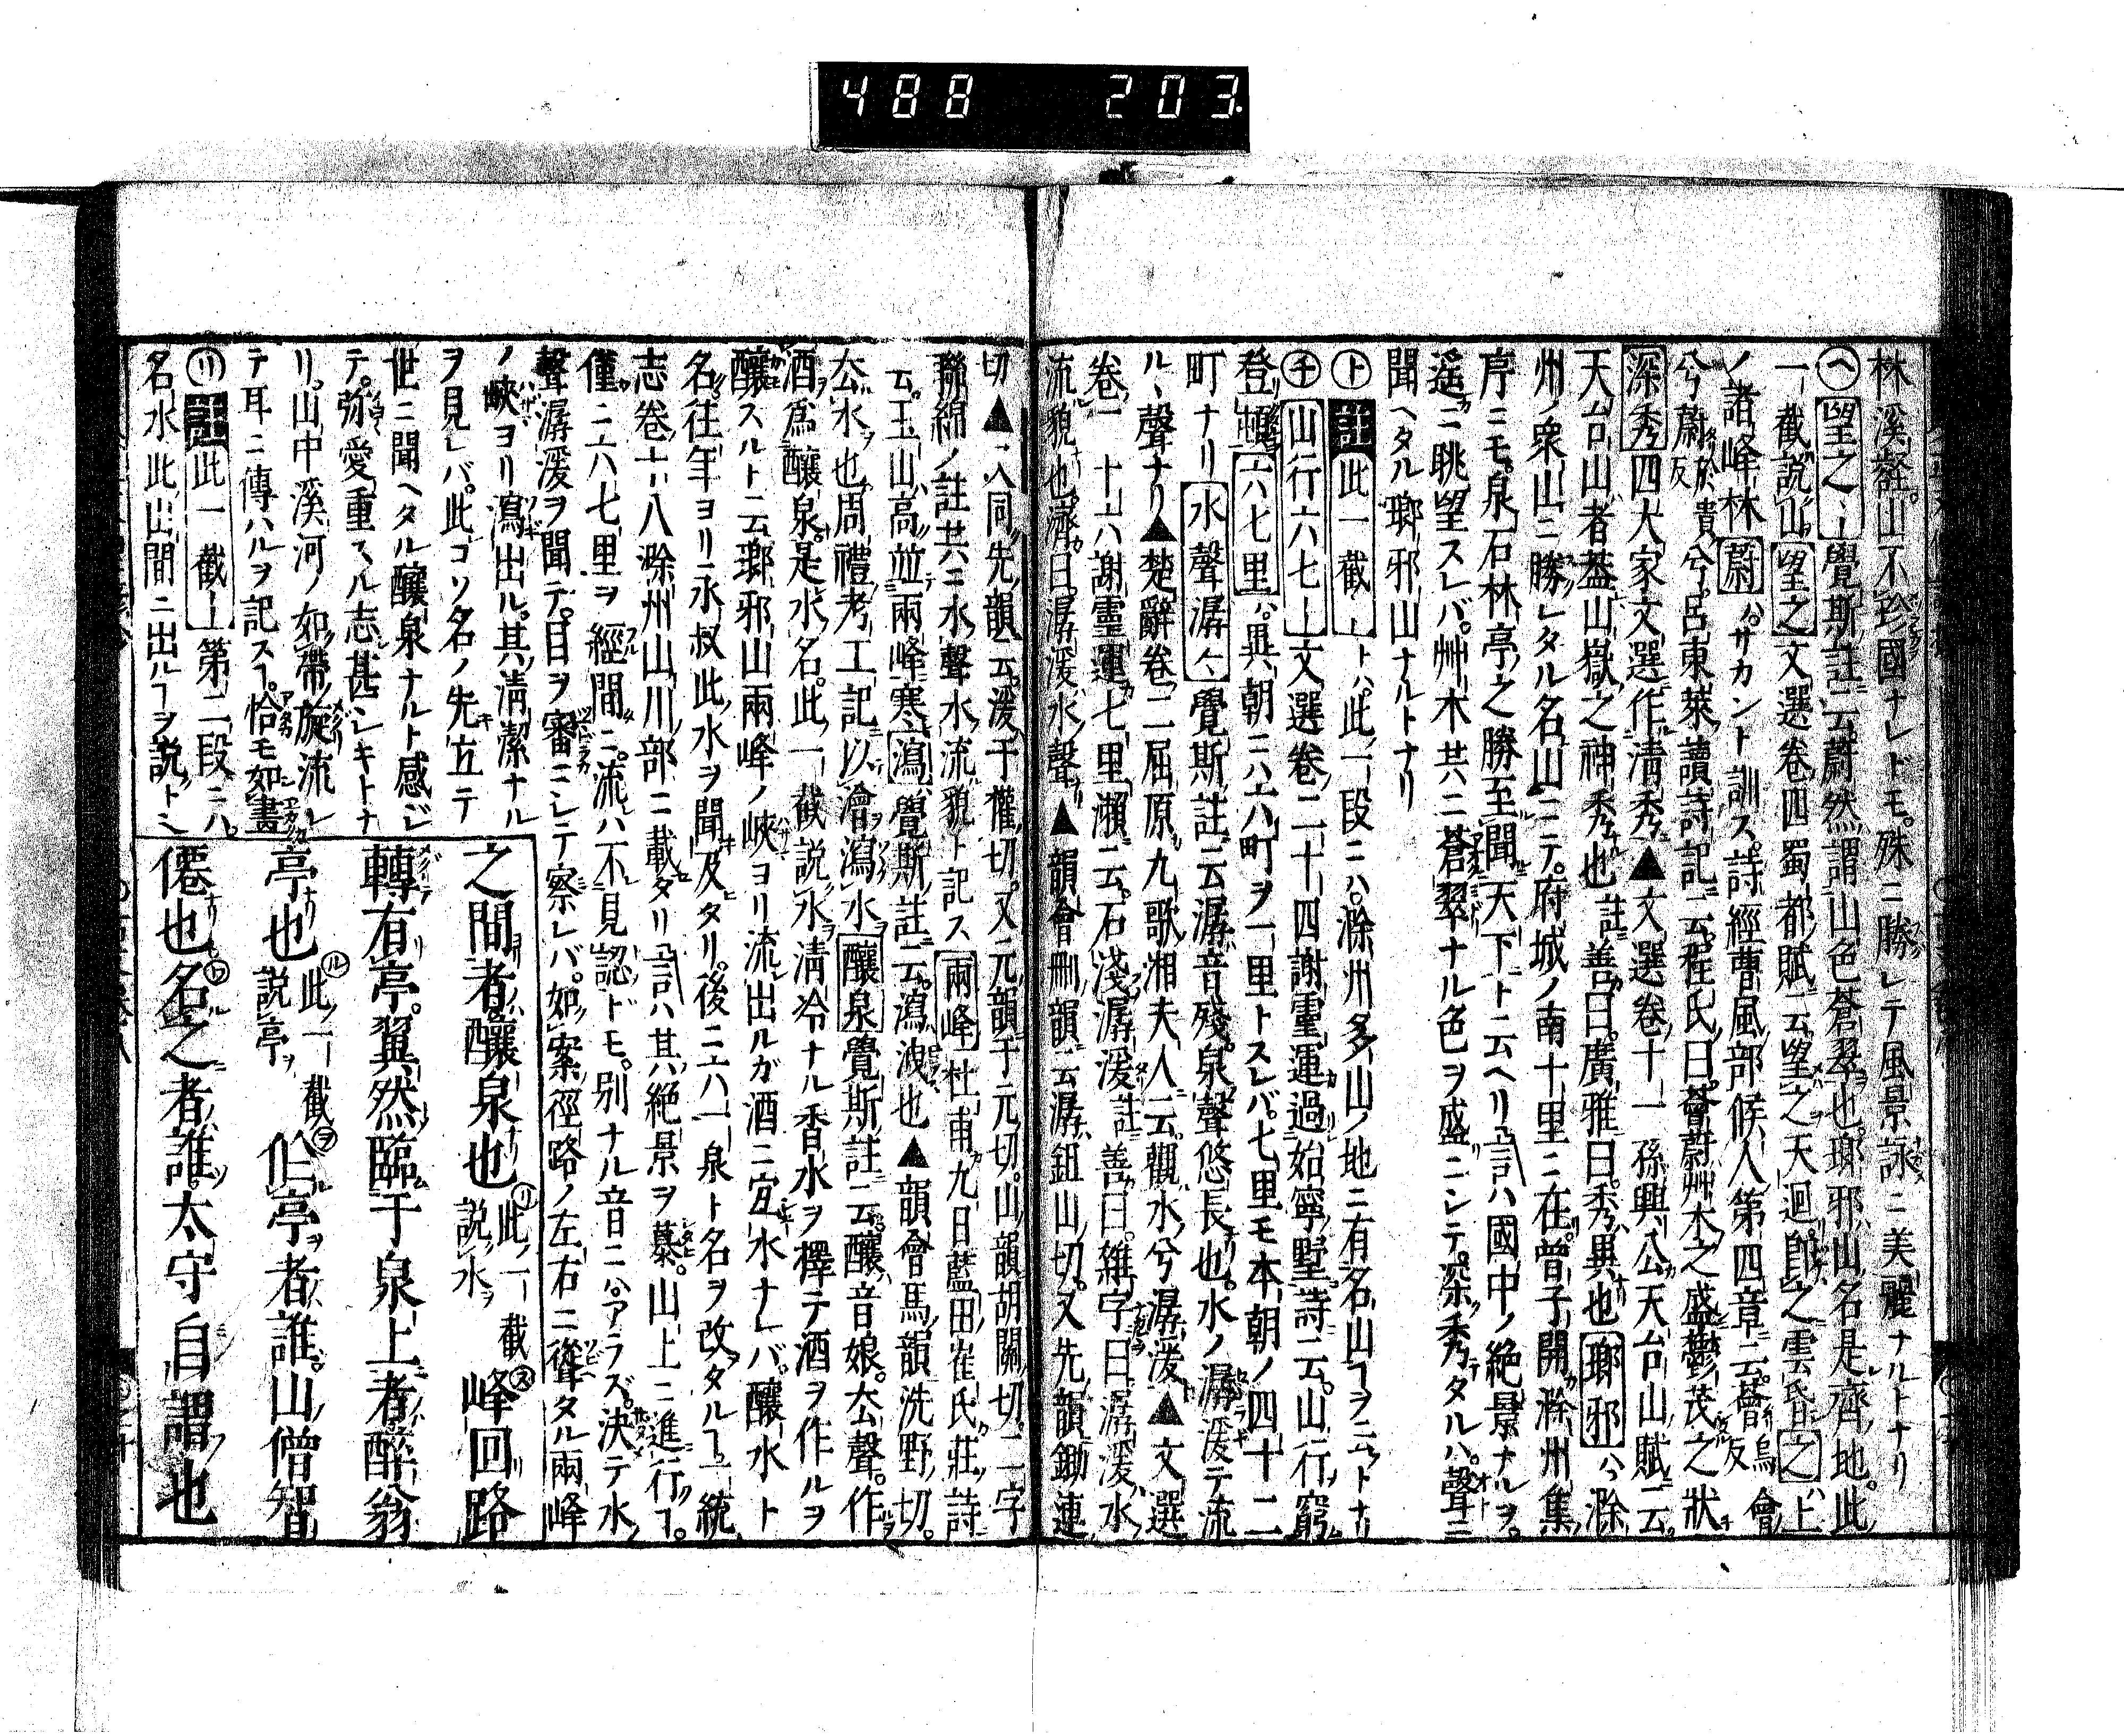 488 203.
林溪壑。山不珍國ナレドモ。殊ニ勝レテ風景詠ニ美麗ナルトナリ
㋬望之〻覺斯註云。蔚然謂山色蒼翠也。瑯邪山名是齊地。此
一截說山。望之文選卷四蜀都賦云。望之天迴即之雲昏之上
ノ諸峰林蔚ハ。サカント訓ス。詩經曹風部候人第四章云。薈烏會反
兮蔚於貴反兮。呂東萊讀詩記云。程氏曰。薈蔚艸木之盛鬱茂之狀
深秀四大家文選作清秀▲文選卷十一孫興公天台山賦云。
天台山者蓋山嶽之神秀也註善曰。廣雅曰。秀異也瑯邪ハ滁
州ノ衆山ニ勝レタル名山ニテ。府城ノ南十里ニ在。曾子開滁州集
序ニモ。泉石林亭之勝至聞天下ト云ヘリ言ハ國中ノ絕景ナルヲ。
遥ニ眺望スレバ。艸木共ニ蒼翠ナル色ヲ盛ニシテ。深秀タルハ。聲ニ
聞ヘタル瑯邪山ナルトナリ
㋣註此一截ートハ。此一段ニハ。滁州多山ノ地ニ有名山ヿヲ云トナリ
㋠山行六七ー文選卷二十四謝靈運過始寧墅詩云。山行窮
登頓六七里ハ。異朝ニハ六町ヲ一里トスレバ。七里モ本朝ノ四十二
町ナリ水聲潺〻覺斯註云潺音殘。泉聲悠長也。水ノ潺湲テ流
ル聲ナリ▲楚辭卷二屈原九歌湘夫人云。觀水兮潺湲▲文選
卷一十六謝靈運七里瀨云。石淺潺湲註善曰。雜字曰潺湲水
流貌也濟曰。潺湲水聲▲韻會刪韻云潺鉏山切。又先韻鋤連
切▲入同先韻云。湲于權切。又元韻于元切。山韻胡關切。二字
聯綿ノ註共ニ水聲水流貌ト記ス兩峰杜甫九日藍田崔氏莊詩
云。玉山高並兩峰寒瀉覺斯註云。瀉洩也▲韻會馬韻洗野切。
厺水也。周禮考工記以澮瀉水釀泉覺斯註云。釀音娘。厺聲。作
酒爲釀泉。是水名。此一截說水清冷ナル香水ヲ擇テ酒ヲ作ルヲ
釀スルト云瑯邪山兩峰ノ峽ヨリ流出ルガ酒ニ宜水ナレバ。釀水ト
名。往年ヨリ永叔此水ヲ聞及タリ。後ニ六一泉ト名ヲ改タルヿ一統
志卷十八滁州山川部ニ載タリ言ハ其絕景ヲ慕。山上ニ進行ヿ。
僅ニ六七里ヲ經間ニ。流ハ不見認ドモ。別ナル音ニハアラズ。決テ水
聲潺湲ヲ聞テ。目ヲ審ニシテ察レバ。如案徑路ノ左右ニ聳タル兩峰
ノ峽ヨリ瀉出ル。其清潔ナル
ヲ見レバ。此コソ名ノ先立テ
世ニ聞ヘタル釀泉ナルト感ジ
テ。弥愛重スル志甚シキトナ
リ。山中溪河ノ如帶旋流レ
テ耳ニ傳ハルヲ記スヿ。恰モ如畫
㋷註此一截ー第二段ニハ。
名水此山間ニ出ルヿヲ說トシ
之間者釀泉也㋷此ノ一截說水ヲ㋦峰回路
轉有亭。翼然臨于泉上者醉翁
亭也㋸此ノ一截說亭ヲ㋾作亭者誰。山僧智
僊也㋻名之者誰。太守自謂也